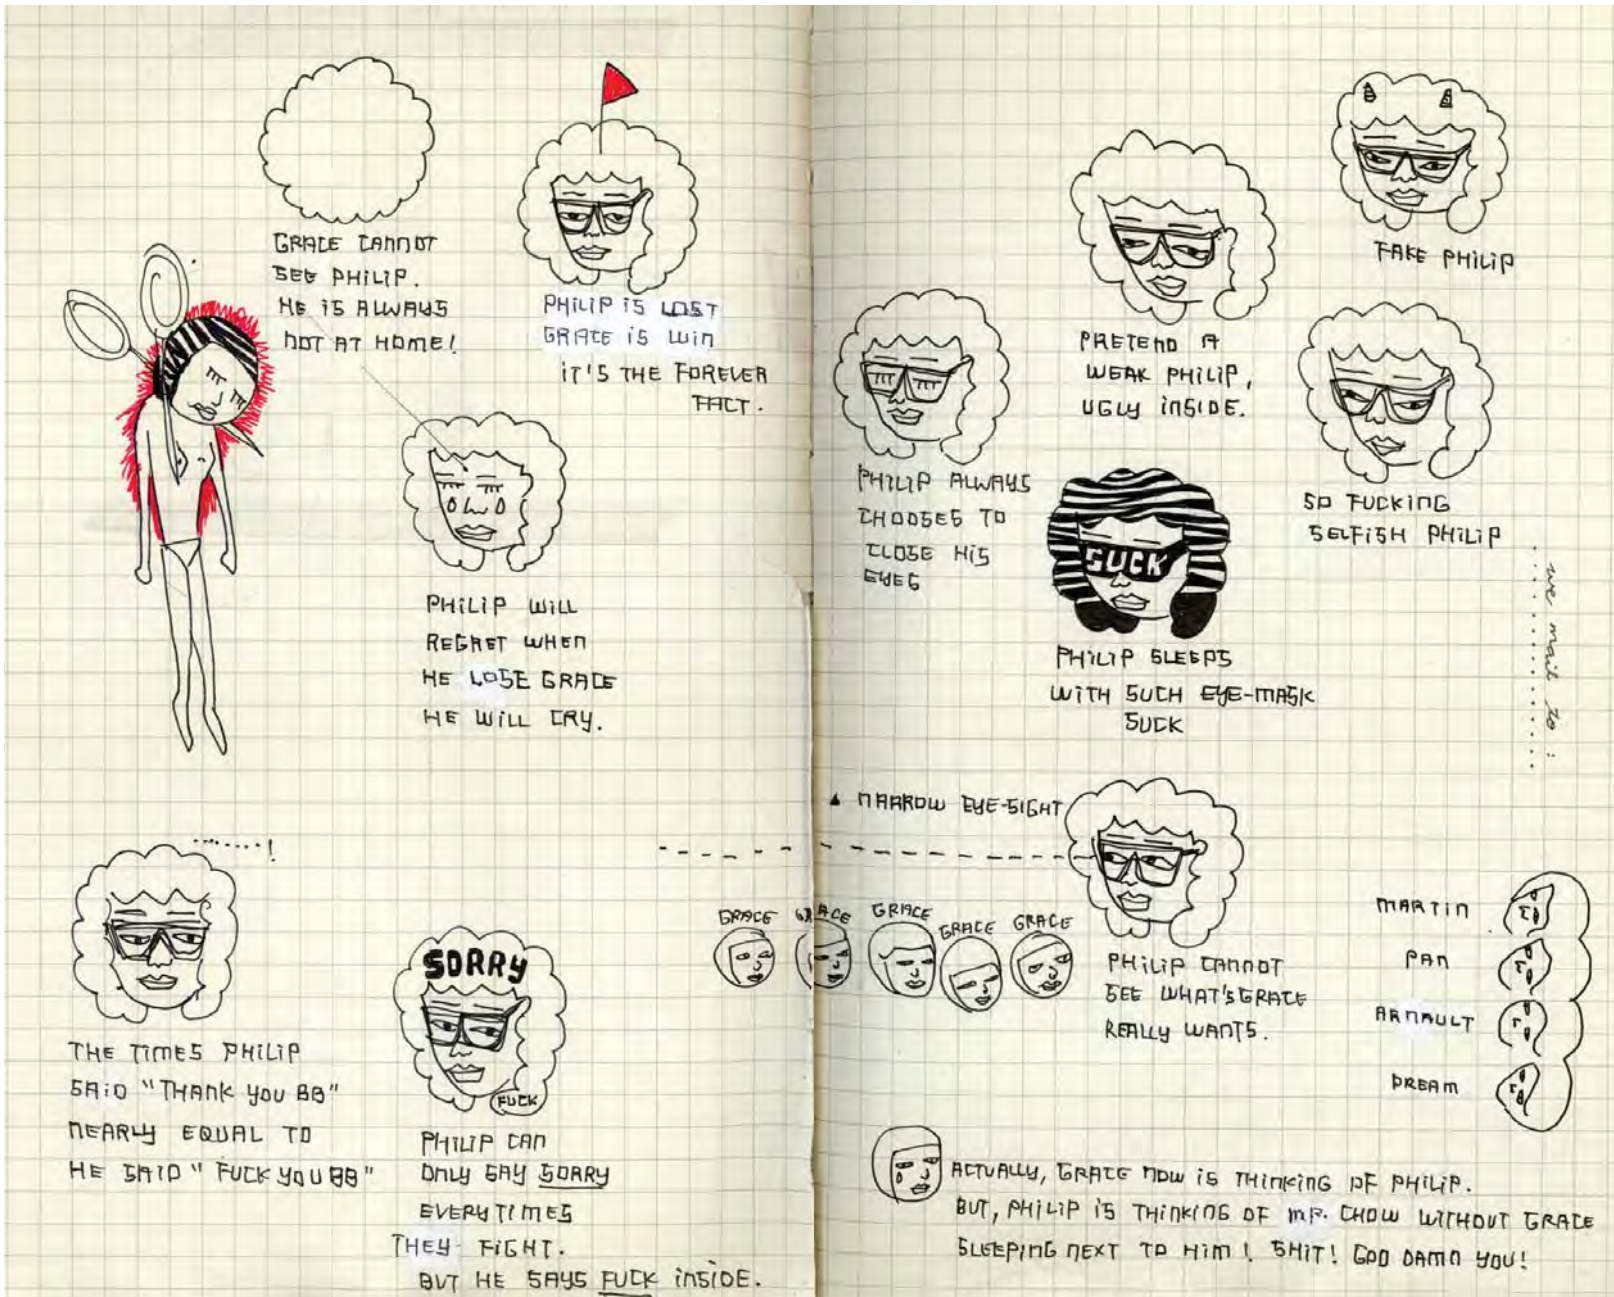 GRACE CANNOT
SEE PHILIP.
HE IS ALWAYS
NOT AT HOME!
PHILIP IS LOST
GRACE IS WIN
IT'S THE FOREVER
FACT.
PHILIP WILL
REGRET WHEN
HE LOSE GRACE
HE WILL CRY.
........!
THE TIMES PHILIP
SAID "THANK YOU BB"
NEARLY EQUAL TO
HE SAID "FUCK YOU BB"
SORRY
FUCK
PHILIP CAN
ONLY SAY SORRY
EVERYTIMES
THEY FIGHT.
BUT HE SAYS FUCK INSIDE.
FAKE PHILIP
PRETEND A
WEAK PHILIP,
UGLY INSIDE.
PHILIP ALWAYS
CHOOSES TO
CLOSE HIS
EYES
SO FUCKING
SELFISH PHILIP
SUCK
PHILIP SLEEPS
WITH SUCH EYE-MASK
SUCK
we mail to:
▲ NARROW EYE-SIGHT
GRACE GRACE GRACE GRACE GRACE
PHILIP CANNOT
SEE WHAT'S GRACE
REALLY WANTS.
MARTIN
PAN
ARNAULT
DREAM
ACTUALLY, GRACE NOW IS THINKING OF PHILIP.
BUT, PHILIP IS THINKING OF MR. CHOW WITHOUT GRACE
SLEEPING NEXT TO HIM! SHIT! GOD DAMN YOU!